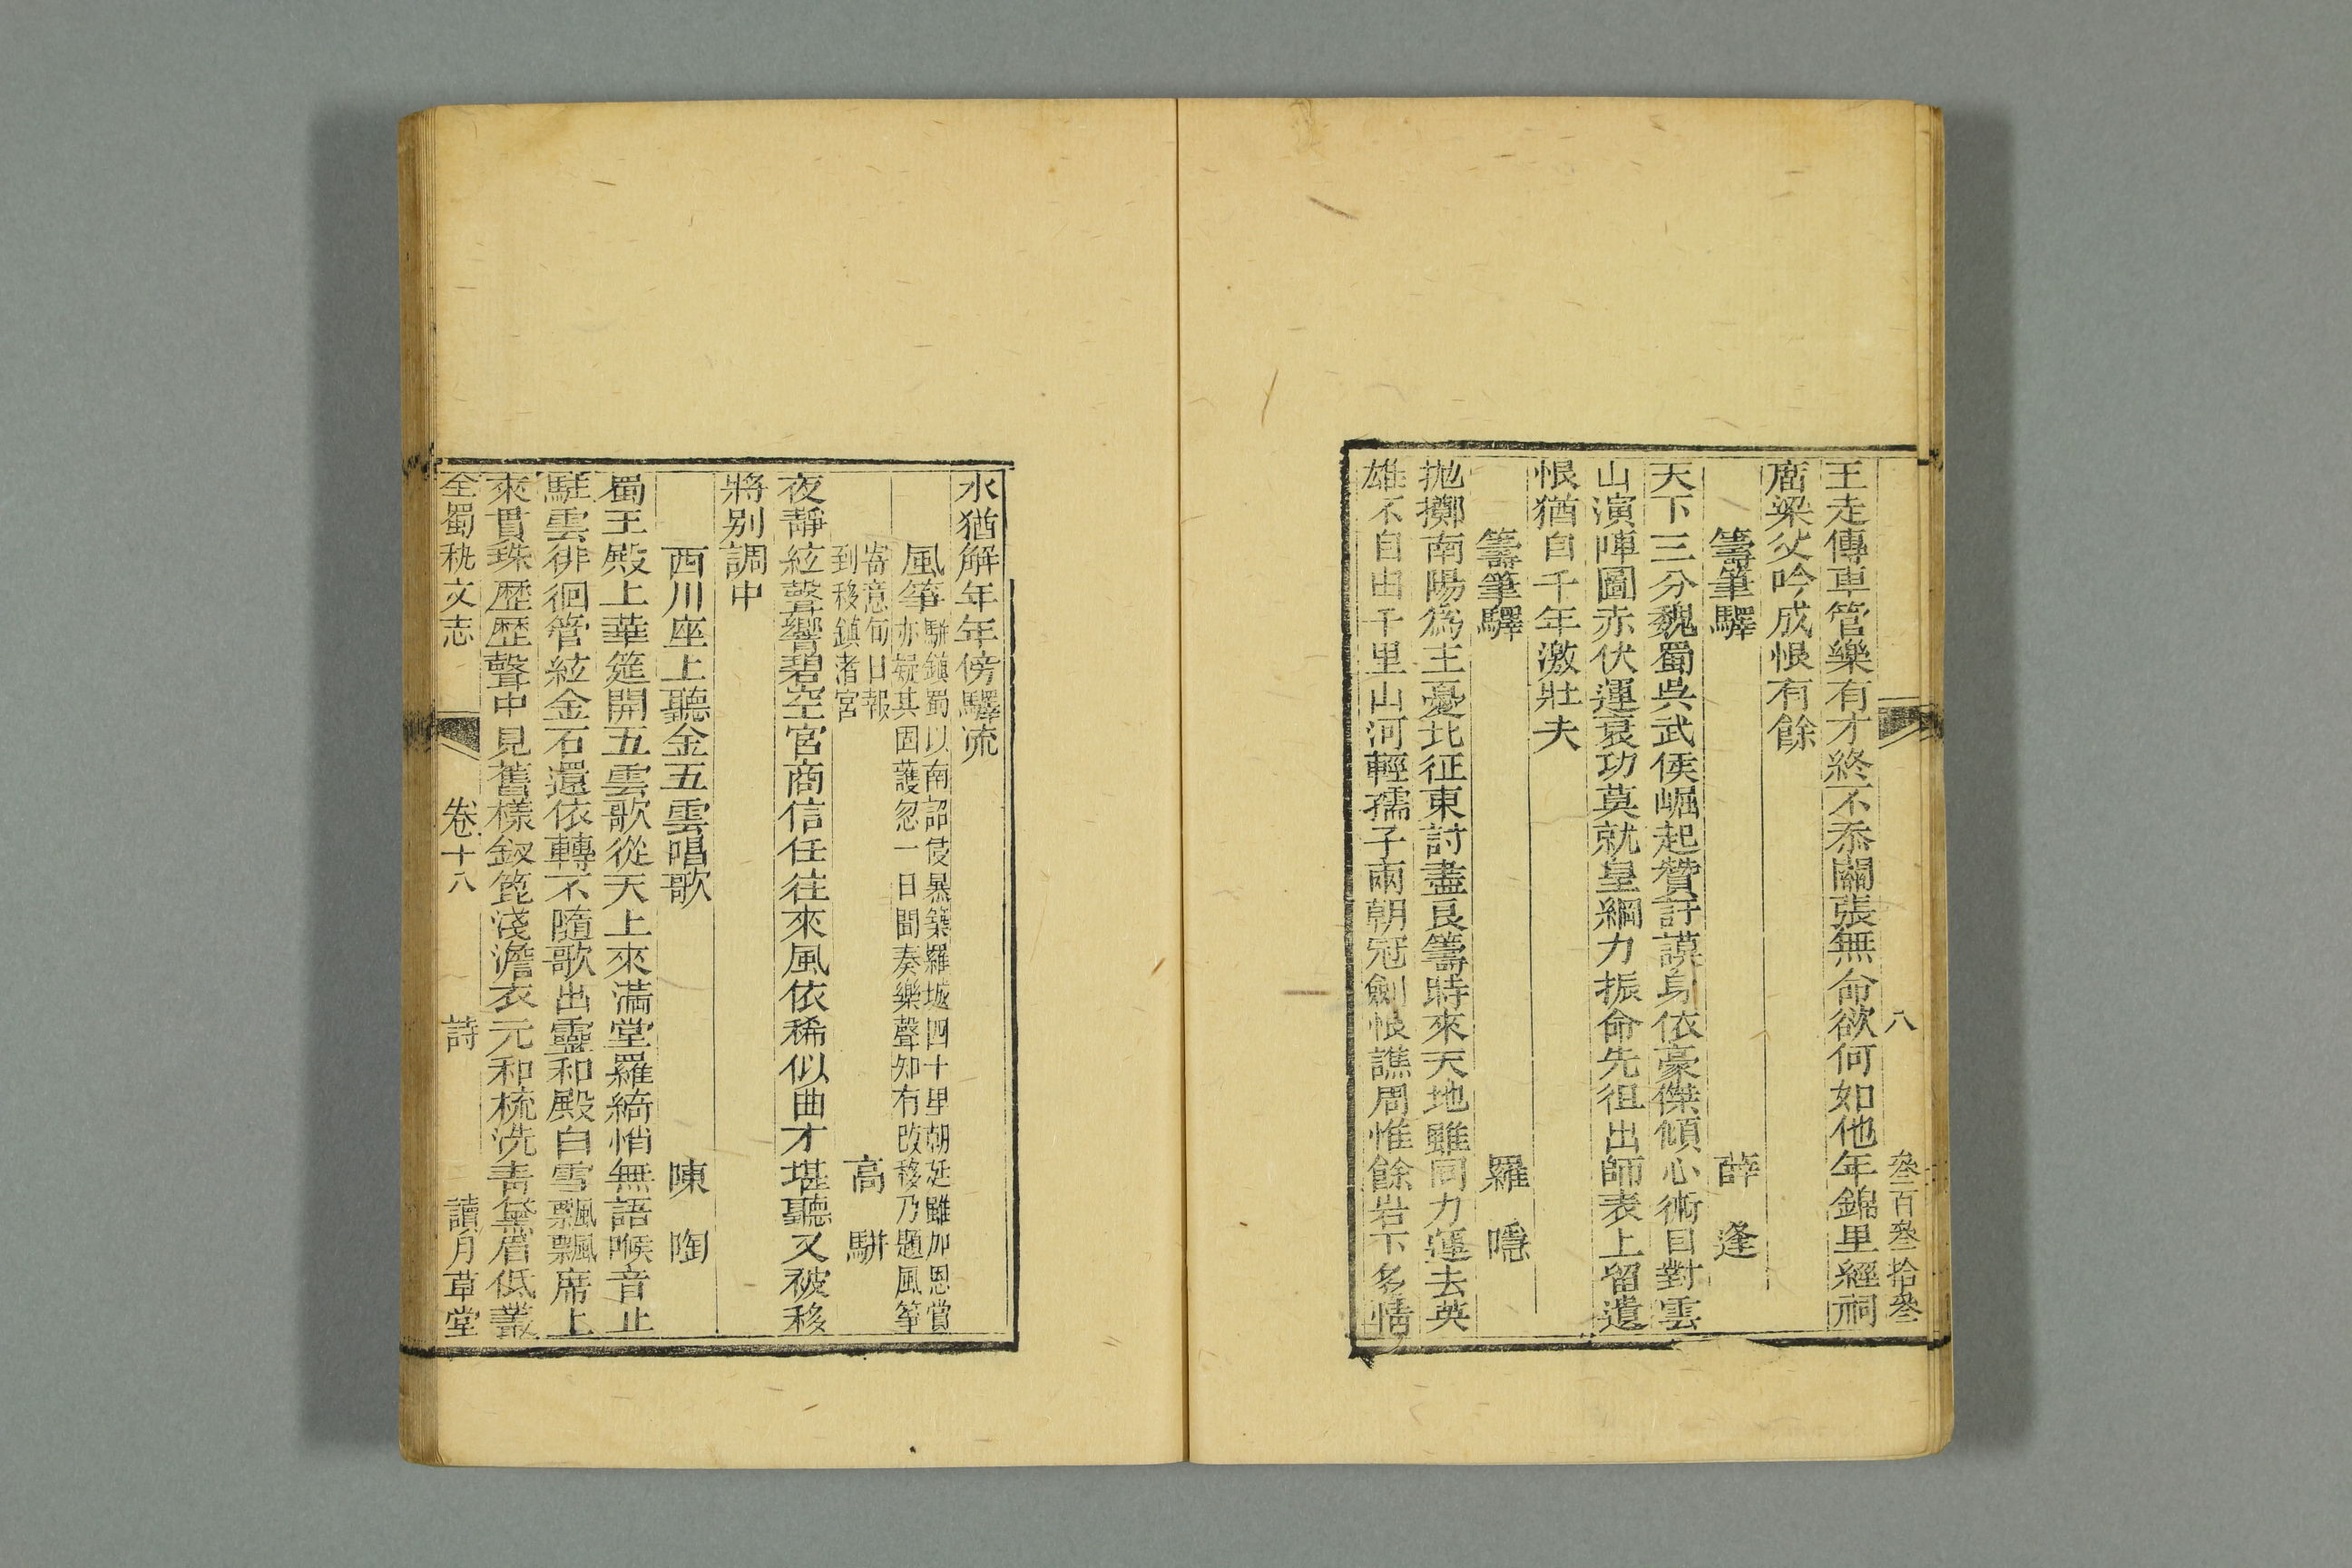 八 叁百叁拾叁
王走傳車管樂有才終不忝關張無命欲何如他年錦里經祠
庿梁父吟成恨有餘
籌筆驛 薛 逢
天下三分魏蜀吳武侯崛起贊訏謨身依豪傑傾心術目對雲
山演陣圖赤伏運衰功莫就皇綱力振命先徂出師表上留遺
恨猶自千年激壯夫
籌筆驛 羅 隱
抛擲南陽為主憂北征東討盡良籌時來天地雖同力運去英
雄不自由千里山河輕孺子兩朝冠劍恨譙周惟餘岩下多情
水猶解年年傍驛流
風箏 駢鎮蜀以南詔侵暴築羅城四十里朝廷雖加恩賞
亦疑其固護忽一日聞奏樂聲知有改移乃題風箏
寄意旬日報
到移鎮渚宮 高 駢
夜靜絃聲響碧空宮商信任往來風依稀似曲才堪聽又被移
將别調中
西川座上聽金五雲唱歌 陳 陶
蜀王殿上華筵開五雲歌從天上來滿堂羅綺悄無語喉音止
駐雲徘徊管絃金石還依轉不隨歌出靈和殿白雪飄飄席上
來貫珠歷歷聲中見舊樣釵篦淺澹衣元和梳洗青黛眉低叢
全蜀秇文志 卷十八 詩 讀月草堂